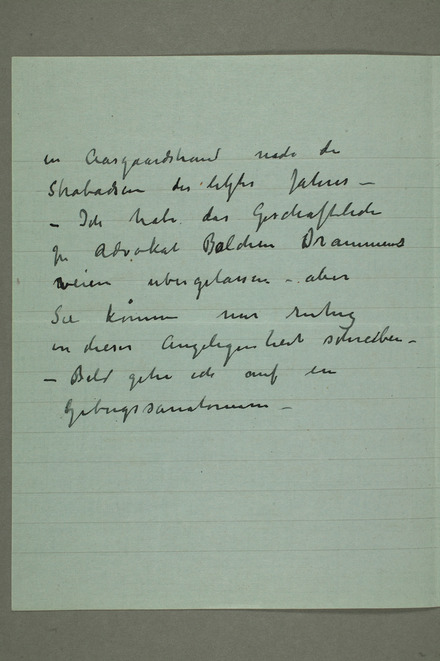 in Aasgaardstrand nach den
Strabadsen des letztes Jahres –
– Ich habe das Geschaftliche
zu Advokat Bolchen Drammens
veien ubergelassen – aber
Sie können nur ruhig
in dieser Angelegenheit schreiben –
– Bald gehe ich auf ein
Gebirgssanatorium –